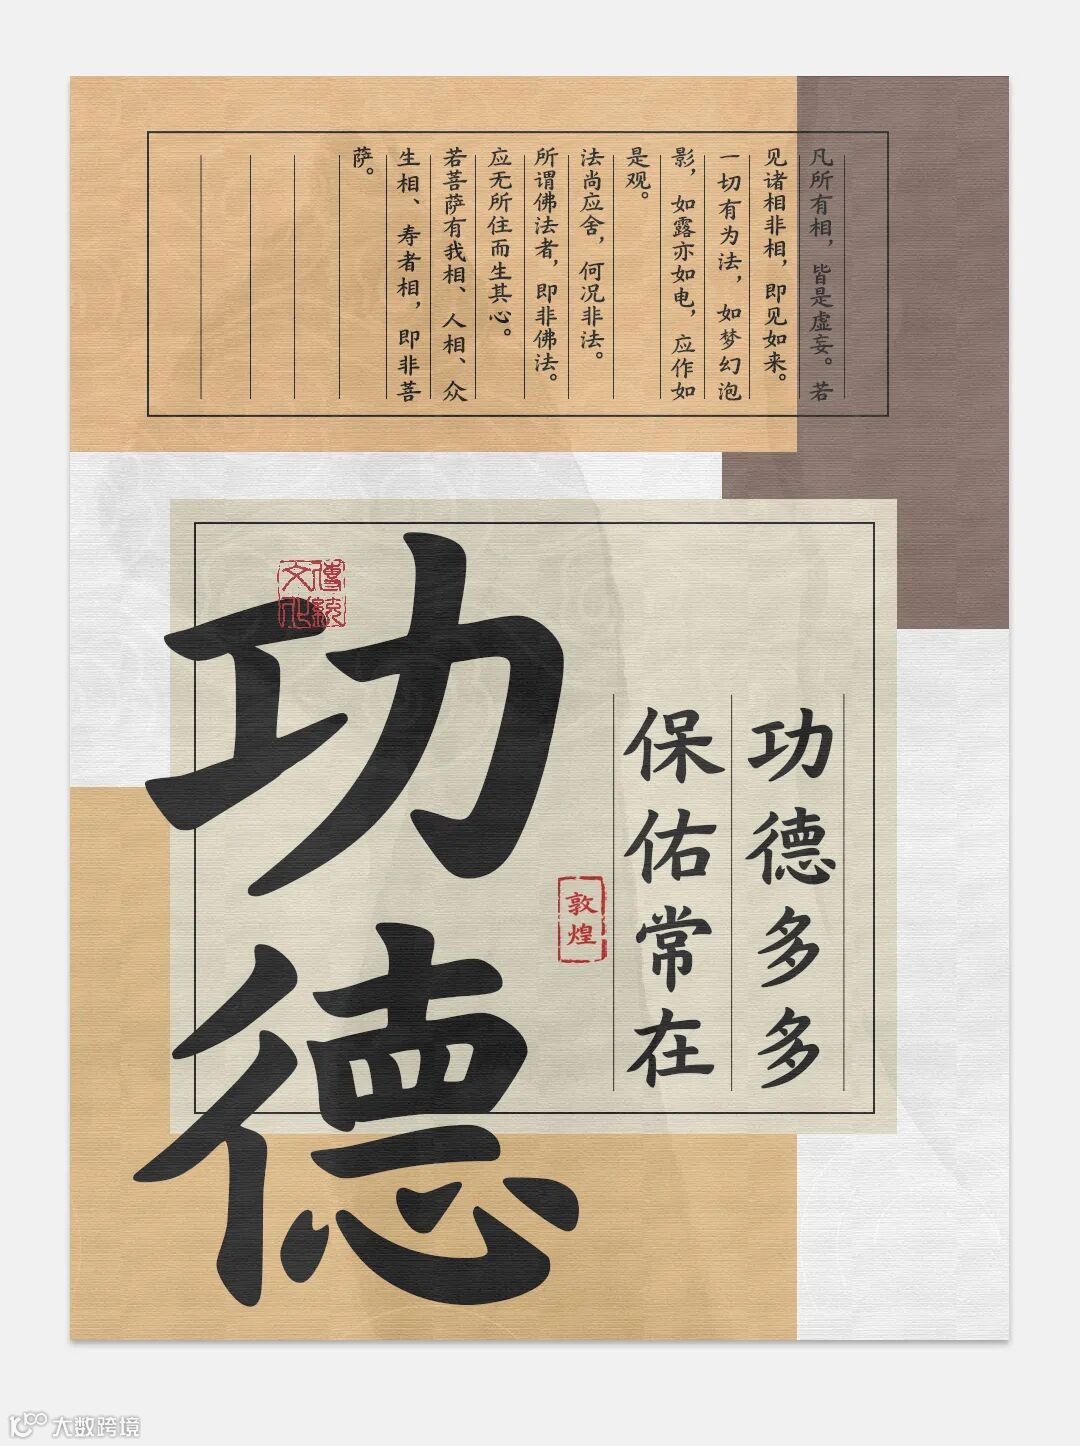 凡所有相，皆是虚妄。若
见诸相非相，即见如来。
一切有为法，如梦幻泡
影，如露亦如电，应作如
是观。
法尚应舍，何况非法。
所谓佛法者，即非佛法。
应无所住而生其心。
若菩萨有我相、人相、众
生相、寿者相，即非菩
萨。
功德
傳統
文化
功德多多
保佑常在
敦煌
大数跨境